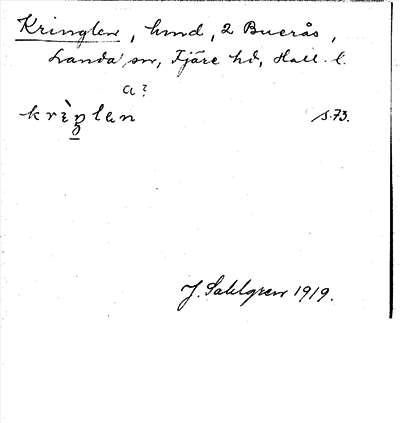 Kringlen, hmd, 2 Buerås,
Landa sn, Fjäre hd, Hall. l.
a?
krìŋlan s. 73.
J. Sahlgren 1919.